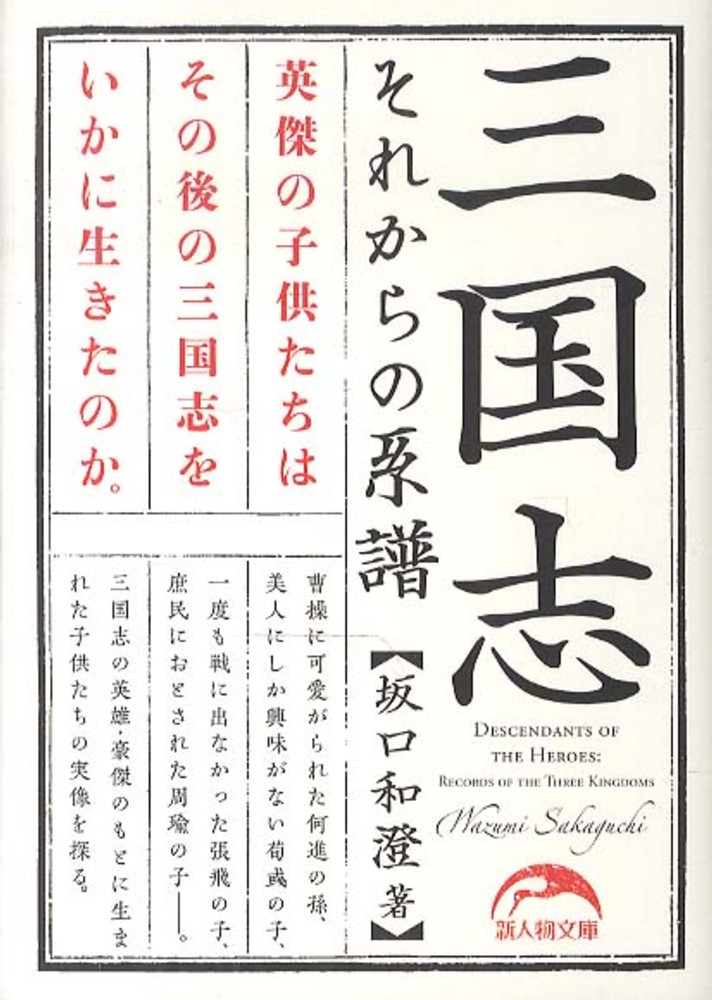 三国志
それからの系譜
【坂口和澄 著】
DESCENDANTS OF
THE HEROES:
RECORDS OF THE THREE KINGDOMS
Wazumi Sakaguchi
新人物文庫
英傑の子供たちは
その後の三国志を
いかに生きたのか。
曹操に可愛がられた何進の孫、
美人にしか興味がない荀彧の子、
一度も戦に出なかった張飛の子、
庶民におとされた周瑜の子――。
三国志の英雄・豪傑のもとに生ま
れた子供たちの実像を探る。